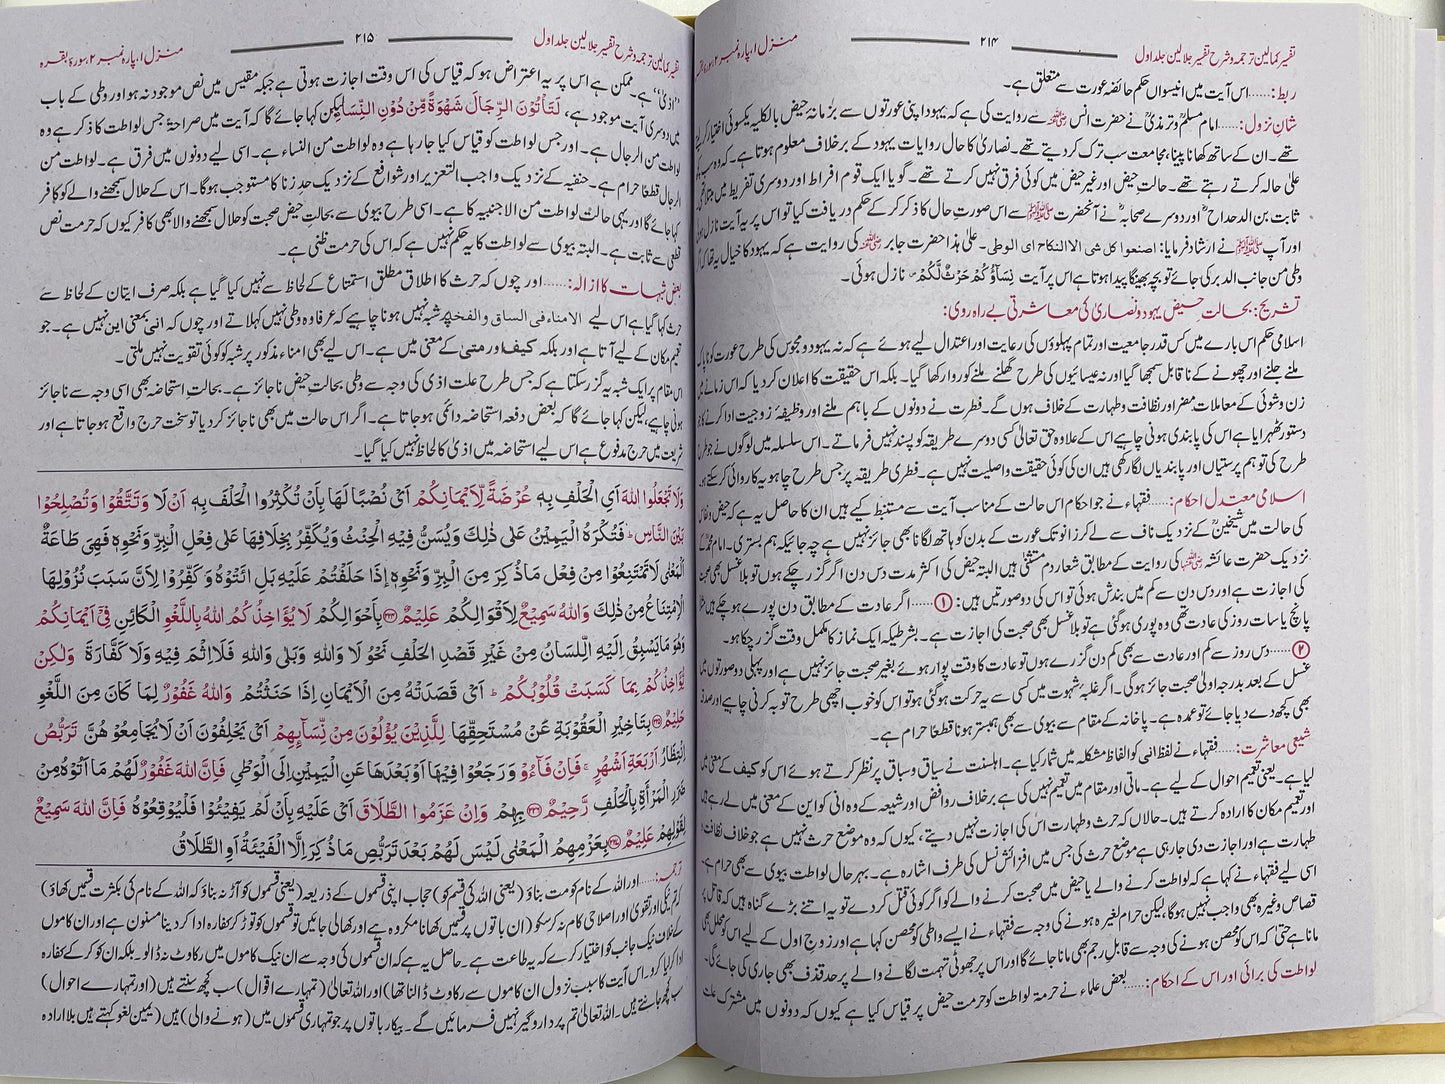 تفسیر کمالین ترجمہ و شرح تفسیر جلالین جلد اول
۲۱۴
منزل ۱، پارہ نمبر ۲، سورۂ بقرہ
ربط:......اس آیت میں انیسواں حکم حائضہ عورت سے متعلق ہے۔
شان نزول:......امام مسلمؒ و ترمذیؒ نے حضرت انس رضی اللہ عنہ سے روایت کی ہے کہ یہود اپنی عورتوں سے بزمانۂ حیض بالکلیہ یکسوئی اختیار کر لیتے
تھے۔ ان کے ساتھ کھانا پینا، مجامعت سب ترک کر دیتے تھے۔ نصاریٰ کا حال روایات یہود کے برخلاف معلوم ہوتا ہے۔ کہ وہ سب باتیں
علیٰ حالہ کرتے رہتے تھے۔ حالت حیض اور غیر حیض میں کوئی فرق نہیں کرتے تھے۔ گویا ایک قوم افراط اور دوسری تفریط میں مبتلا تھی
ثابت بن الدحداح اور دوسرے صحابہؓ نے آنحضرت ﷺ سے اس صورتِ حال کا ذکر کر کے حکم دریافت کیا تو اس پر یہ آیت نازل ہوئی
اور آپ ﷺ نے ارشاد فرمایا: اصنعوا کل شی الا النکاح ای الوطی۔ علیٰ ہذا حضرت جابر رضی اللہ عنہ کی روایت ہے کہ یہود کا خیال یہ تھا کہ اگر
وطی من جانب الدبر کی جائے تو بچہ بھینگا پیدا ہوتا ہے اس پر آیت نِسَآؤُكُمْ حَرْثٌ لَّكُمْ نازل ہوئی۔
تشریح: بحالت حیض یہود و نصاریٰ کی معاشرتی بے راہ روی:
اسلامی حکم اس بارے میں کس قدر جامعیت اور تمام پہلوؤں کی رعایت اور اعتدال لیے ہوئے ہے کہ نہ یہود و مجوس کی طرح عورت کو ناپاک
ملنے جلنے اور چھونے کے ناقابل سمجھا گیا اور نہ عیسائیوں کی طرح گھلنے ملنے کو روا رکھا گیا۔ بلکہ اس حقیقت کا اعلان کر دیا کہ اس زمانے میں
زن و شوئی کے معاملات مضر اور نظافت و طہارت کے خلاف ہوں گے۔ فطرت نے دونوں کے باہم ملنے اور وظیفۂ زوجیت ادا کرنے کا جو
دستور ٹھہرایا ہے اس کی پابندی ہونی چاہیے اس کے علاوہ حق تعالیٰ کسی دوسرے طریقہ کو پسند نہیں فرماتے۔ اس سلسلہ میں لوگوں نے جو طرح
طرح کی توہم پرستیاں اور پابندیاں لگا رکھی ہیں ان کی کوئی حقیقت و اصلیت نہیں ہے۔ فطری طریقہ پر جس طرح چاہو یہ کاروائی کر سکتے ہو۔
اسلامی معتدل احکام:......فقہاء نے جو احکام اس حالت کے مناسب آیت سے مستنبط کیے ہیں ان کا حاصل یہ ہے کہ حیض و نفاس
کی حالت میں شیخینؒ کے نزدیک ناف سے لے کر زانو تک عورت کے بدن کو ہاتھ لگانا بھی جائز نہیں ہے چہ جائیکہ ہم بستری۔ امام محمدؒ کے
نزدیک حضرت عائشہ رضی اللہ عنہا کی روایت کے مطابق شعار دم مستثنیٰ ہیں البتہ حیض کی اکثر مدت دس دن اگر گزر چکے ہوں تو بلا غسل بھی صحبت
کی اجازت ہے اور دس دن سے کم میں بندش ہوئی تو اس کی دو صورتیں ہیں: ①......اگر عادت کے مطابق دن پورے ہو چکے ہیں مثلاً
پانچ یا سات روز کی عادت تھی وہ پوری ہو گئی ہے تو بلا غسل بھی صحبت کی اجازت ہے۔ بشرطیکہ ایک نماز کا مکمل وقت گزر چکا ہو۔
②......دس روز سے کم اور عادت سے بھی کم دن گزرے ہوں تو عادت کا وقت پورا ہوئے بغیر صحبت جائز نہیں ہے اور پہلی دو صورتوں میں
غسل کے بعد بدرجہ اولیٰ صحبت جائز ہوگی۔ اگر غلبۂ شہوت میں کسی سے یہ حرکت ہو گئی ہو تو اس کو خوب اچھی طرح توبہ کرنی چاہیے اور صدقہ
بھی کچھ دے دیا جائے تو عمدہ ہے۔ پاخانہ کے مقام سے بیوی سے بھی ہمبستر ہونا قطعاً حرام ہے۔
شیعی معاشرت:......فقہاء نے لفظ انی کو الفاظ مشکلہ میں شمار کیا ہے۔ اہلسنت نے سیاق و سباق پر نظر کرتے ہوئے اس کو کیف کے معنی میں
لیا ہے۔ یعنی تعمیم احوال کے لیے ہے۔ ماتی اور مقام میں تعمیم نہیں کی ہے برخلاف روافض اور شیعہ کے وہ انی کو این کے معنی میں لے رہے ہیں
اور تعمیم مکان کا ارادہ کرتے ہیں۔ حالانکہ حرث و طہارت اس کی اجازت نہیں دیتے، کیوں کہ وہ موضع حرث نہیں ہے جو خلاف نظافت و
طہارت ہے اور اجازت دی جا رہی ہے موضع حرث کی جس میں افزائش نسل کی طرف اشارہ ہے۔ بہرحال لواطت بیوی سے بھی حرام ہے۔
اسی لیے فقہاء نے کہا ہے کہ لواطت کرنے والے یا حیض میں صحبت کرنے والے کو اگر کوئی قتل کر دے تو یہ اتنے بڑے گناہ ہیں کہ قاتل پر
قصاص وغیرہ بھی واجب نہیں ہوگا، لیکن حرام لغیرہ ہونے کی وجہ سے فقہاء نے ایسے واطی کو محصن کہا ہے اور زوج اول کے لیے اس کو محلل بھی
مانا ہے حتیٰ کہ اس کو محصن ہونے کی وجہ سے قابل رجم بھی مانا جائے گا اور اس پر جھوٹی تہمت لگانے والے پر حد قذف بھی جاری کی جائے گی۔
لواطت کی برائی اور اس کے احکام:......بعض علماء نے حرمۃ لواطت کو حرمت حیض پر قیاس کیا ہے کیوں کہ دونوں میں مشترک علت
تفسیر کمالین ترجمہ و شرح تفسیر جلالین جلد اول
۲۱۵
منزل ۱، پارہ نمبر ۲، سورۂ بقرہ
”اذیٰ“ ہے۔ ممکن ہے اس پر یہ اعتراض ہو کہ قیاس کی اس وقت اجازت ہوتی ہے جبکہ مقیس میں نص موجود نہ ہو اور وطی کے باب
میں دوسری آیت موجود ہے، لَتَأْتُوْنَ الرِّجَالَ شَهْوَةً مِّنْ دُوْنِ النِّسَآءِ لیکن کہا جائے گا کہ آیت میں صراحۃً جس لواطت کا ذکر ہے وہ
لواطت من الرجال ہے۔ اور جس لواطت کو قیاس کیا جا رہا ہے وہ لواطت من النساء ہے۔ اسی لیے دونوں میں فرق ہے۔ لواطت من
الرجال قطعاً حرام ہے۔ حنفیہ کے نزدیک واجب التعزیر اور شوافع کے نزدیک حد زنا کا مستوجب ہوگا۔ اس کے حلال سمجھنے والے کو کافر
کہا جائے گا اور یہی حالت لواطت من الاجنبیہ کا ہے۔ اسی طرح بیوی سے بحالتِ حیض صحبت کو حلال سمجھنے والا بھی کافر کیوں کہ حرمت نص
قطعی سے ثابت ہے۔ البتہ بیوی سے لواطت کا یہ حکم نہیں ہے کہ اس کی حرمت ظنی ہے۔
بعض شبہات کا ازالہ:......اور چوں کہ حرث کا اطلاق مطلق استمتاع کے لحاظ سے نہیں کیا گیا ہے بلکہ صرف ایتان کے لحاظ سے
حرث کہا گیا ہے اس لیے الامناء فی الساق والفخذ پر شبہ نہیں ہونا چاہیے کہ عرفاً وہ وطی نہیں کہلاتے اور چوں کہ انی بمعنی این نہیں ہے۔ جو
تعمیم مکان کے لیے آتا ہے اور بلکہ کیف اور متیٰ کے معنی میں ہے۔ اس لیے بھی امناء مذکور پر شبہ کو کوئی تقویت نہیں ملتی۔
اس مقام پر ایک شبہ یہ گزر سکتا ہے کہ جس طرح علت اذی کی وجہ سے وطی بحالت حیض ناجائز ہے۔ بحالتِ استحاضہ بھی اسی وجہ سے ناجائز
ہونی چاہیے، لیکن کہا جائے گا کہ بعض دفعہ استحاضہ دائمی ہو جاتا ہے۔ اگر اس حالت میں بھی ناجائز کر دیا تو سخت حرج واقع ہو جاتا ہے اور
شریعت میں حرج مدفوع ہے اس لیے استحاضہ میں اذیٰ کا لحاظ نہیں کیا گیا۔
وَلَا تَجْعَلُوا اللّٰهَ اَيِ الْحَلْفِ بِهٖ عُرْضَةً لِّاَيْمَانِكُمْ اَيْ نُصْبًا لَهَا بِاَنْ تُكْثِرُوا الْحَلْفَ بِهٖ اَنْ لَا وَتَتَّقُوْا وَتُصْلِحُوْا
بَيْنَ النَّاسِ ؕ فَتُكْرَهُ الْيَمِيْنُ عَلٰى ذٰلِكَ وَيُسَنُّ فِيْهِ الْحِنْثُ وَيُكَفِّرُ بِخِلَافِهَا عَلٰى فِعْلِ الْبِرِّ وَنَحْوِهٖ فَهِيَ طَاعَةٌ
اَلْمَعْنٰى لَا تَمْتَنِعُوْا مِنْ فِعْلِ مَا ذُكِرَ مِنَ الْبِرِّ وَنَحْوِهٖ اِذَا حَلَفْتُمْ عَلَيْهِ بَلِ ائْتُوْهُ وَكَفِّرُوْا لِاَنَّ سَبَبَ نُزُوْلِهَا
الْاِمْتِنَاعُ مِنْ ذٰلِكَ وَاللّٰهُ سَمِيْعٌ لِاَقْوَالِكُمْ عَلِيْمٌ ﴿۲۲۴﴾ بِاَحْوَالِكُمْ لَا يُؤَاخِذُكُمُ اللّٰهُ بِاللَّغْوِ الْكَائِنِ فِيْٓ اَيْمَانِكُمْ
وَهُوَ مَا يَسْبِقُ اِلَيْهِ اللِّسَانُ مِنْ غَيْرِ قَصْدِ الْحَلْفِ نَحْوُ لَا وَاللّٰهِ وَبَلٰى وَاللّٰهِ فَلَا اِثْمَ فِيْهِ وَلَا كَفَّارَةَ وَلٰكِنْ
يُّؤَاخِذُكُمْ بِمَا كَسَبَتْ قُلُوْبُكُمْ ؕ اَيْ قَصَدَتْهُ مِنَ الْاَيْمَانِ اِذَا حَنَثْتُمْ وَاللّٰهُ غَفُوْرٌ لِمَا كَانَ مِنَ اللَّغْوِ
حَلِيْمٌ ﴿۲۲۵﴾ بِتَاخِيْرِ الْعَقُوْبَةِ عَنْ مُسْتَحِقِّهَا لِلَّذِيْنَ يُؤْلُوْنَ مِنْ نِّسَآئِهِمْ اَيْ يَحْلِفُوْنَ اَنْ لَا يُجَامِعُوْهُنَّ تَرَبُّصُ
اِنْتِظَارُ اَرْبَعَةِ اَشْهُرٍ ۚ فَاِنْ فَآءُوْ وَرَجَعُوْا فِيْهَا اَوْ بَعْدَهَا عَنِ الْيَمِيْنِ اِلَى الْوَطْيِ فَاِنَّ اللّٰهَ غَفُوْرٌ لَهُمْ مَا اَتَوْهُ مِنْ
ضَرَرِ الْمَرْأَةِ بِالْحَلْفِ رَّحِيْمٌ ﴿۲۲۶﴾ بِهِمْ وَاِنْ عَزَمُوا الطَّلَاقَ اَيْ عَلَيْهِ بِاَنْ لَمْ يَفِيْئُوْا فَلْيُوْقِعُوْهُ فَاِنَّ اللّٰهَ سَمِيْعٌ
لِقَوْلِهِمْ عَلِيْمٌ ﴿۲۲۷﴾ بِعَزْمِهِمُ الْمَعْنٰى لَيْسَ لَهُمْ بَعْدَ تَرَبُّصِ مَا ذُكِرَ اِلَّا الْفَيْئَةُ اَوِ الطَّلَاقُ
ترجمہ:......اور اللہ کے نام کو مت بناؤ (یعنی اللہ کی قسم کو) حجاب اپنی قسموں کے ذریعہ (یعنی قسموں کو آڑ نہ بناؤ کہ اللہ کے نام کی بکثرت قسمیں کھاؤ)
کہ تم نیکی اور تقویٰ اور اصلاحی کام نہ کر سکو (ان باتوں پر قسمیں کھانا مکروہ ہے اور کھالی جائیں تو قسموں کو توڑ کر کفارہ ادا کر دینا مسنون ہے اور ان کاموں
کے خلاف نیک جانب کو اختیار کرے کہ یہ طاعت ہے۔ حاصل یہ ہے کہ ان قسموں کی وجہ سے ان نیک کاموں میں رکاوٹ نہ ڈالو۔ بلکہ ان کو کر کے کفارہ
ادا کر لیا کرو۔ اس آیت کا سبب نزول ان کاموں سے رکاوٹ ڈالنا تھا) اور اللہ تعالیٰ (تمہارے اقوال) سب کچھ سنتے ہیں (اور تمہارے احوال)
سب کچھ جانتے ہیں۔ اللہ تعالیٰ تم پر دارو گیر نہیں فرمائیں گے۔ بیکار باتوں پر جو تمہاری قسموں میں (ہونے والی) ہیں (یمین لغو کہتے ہیں بلا ارادہ